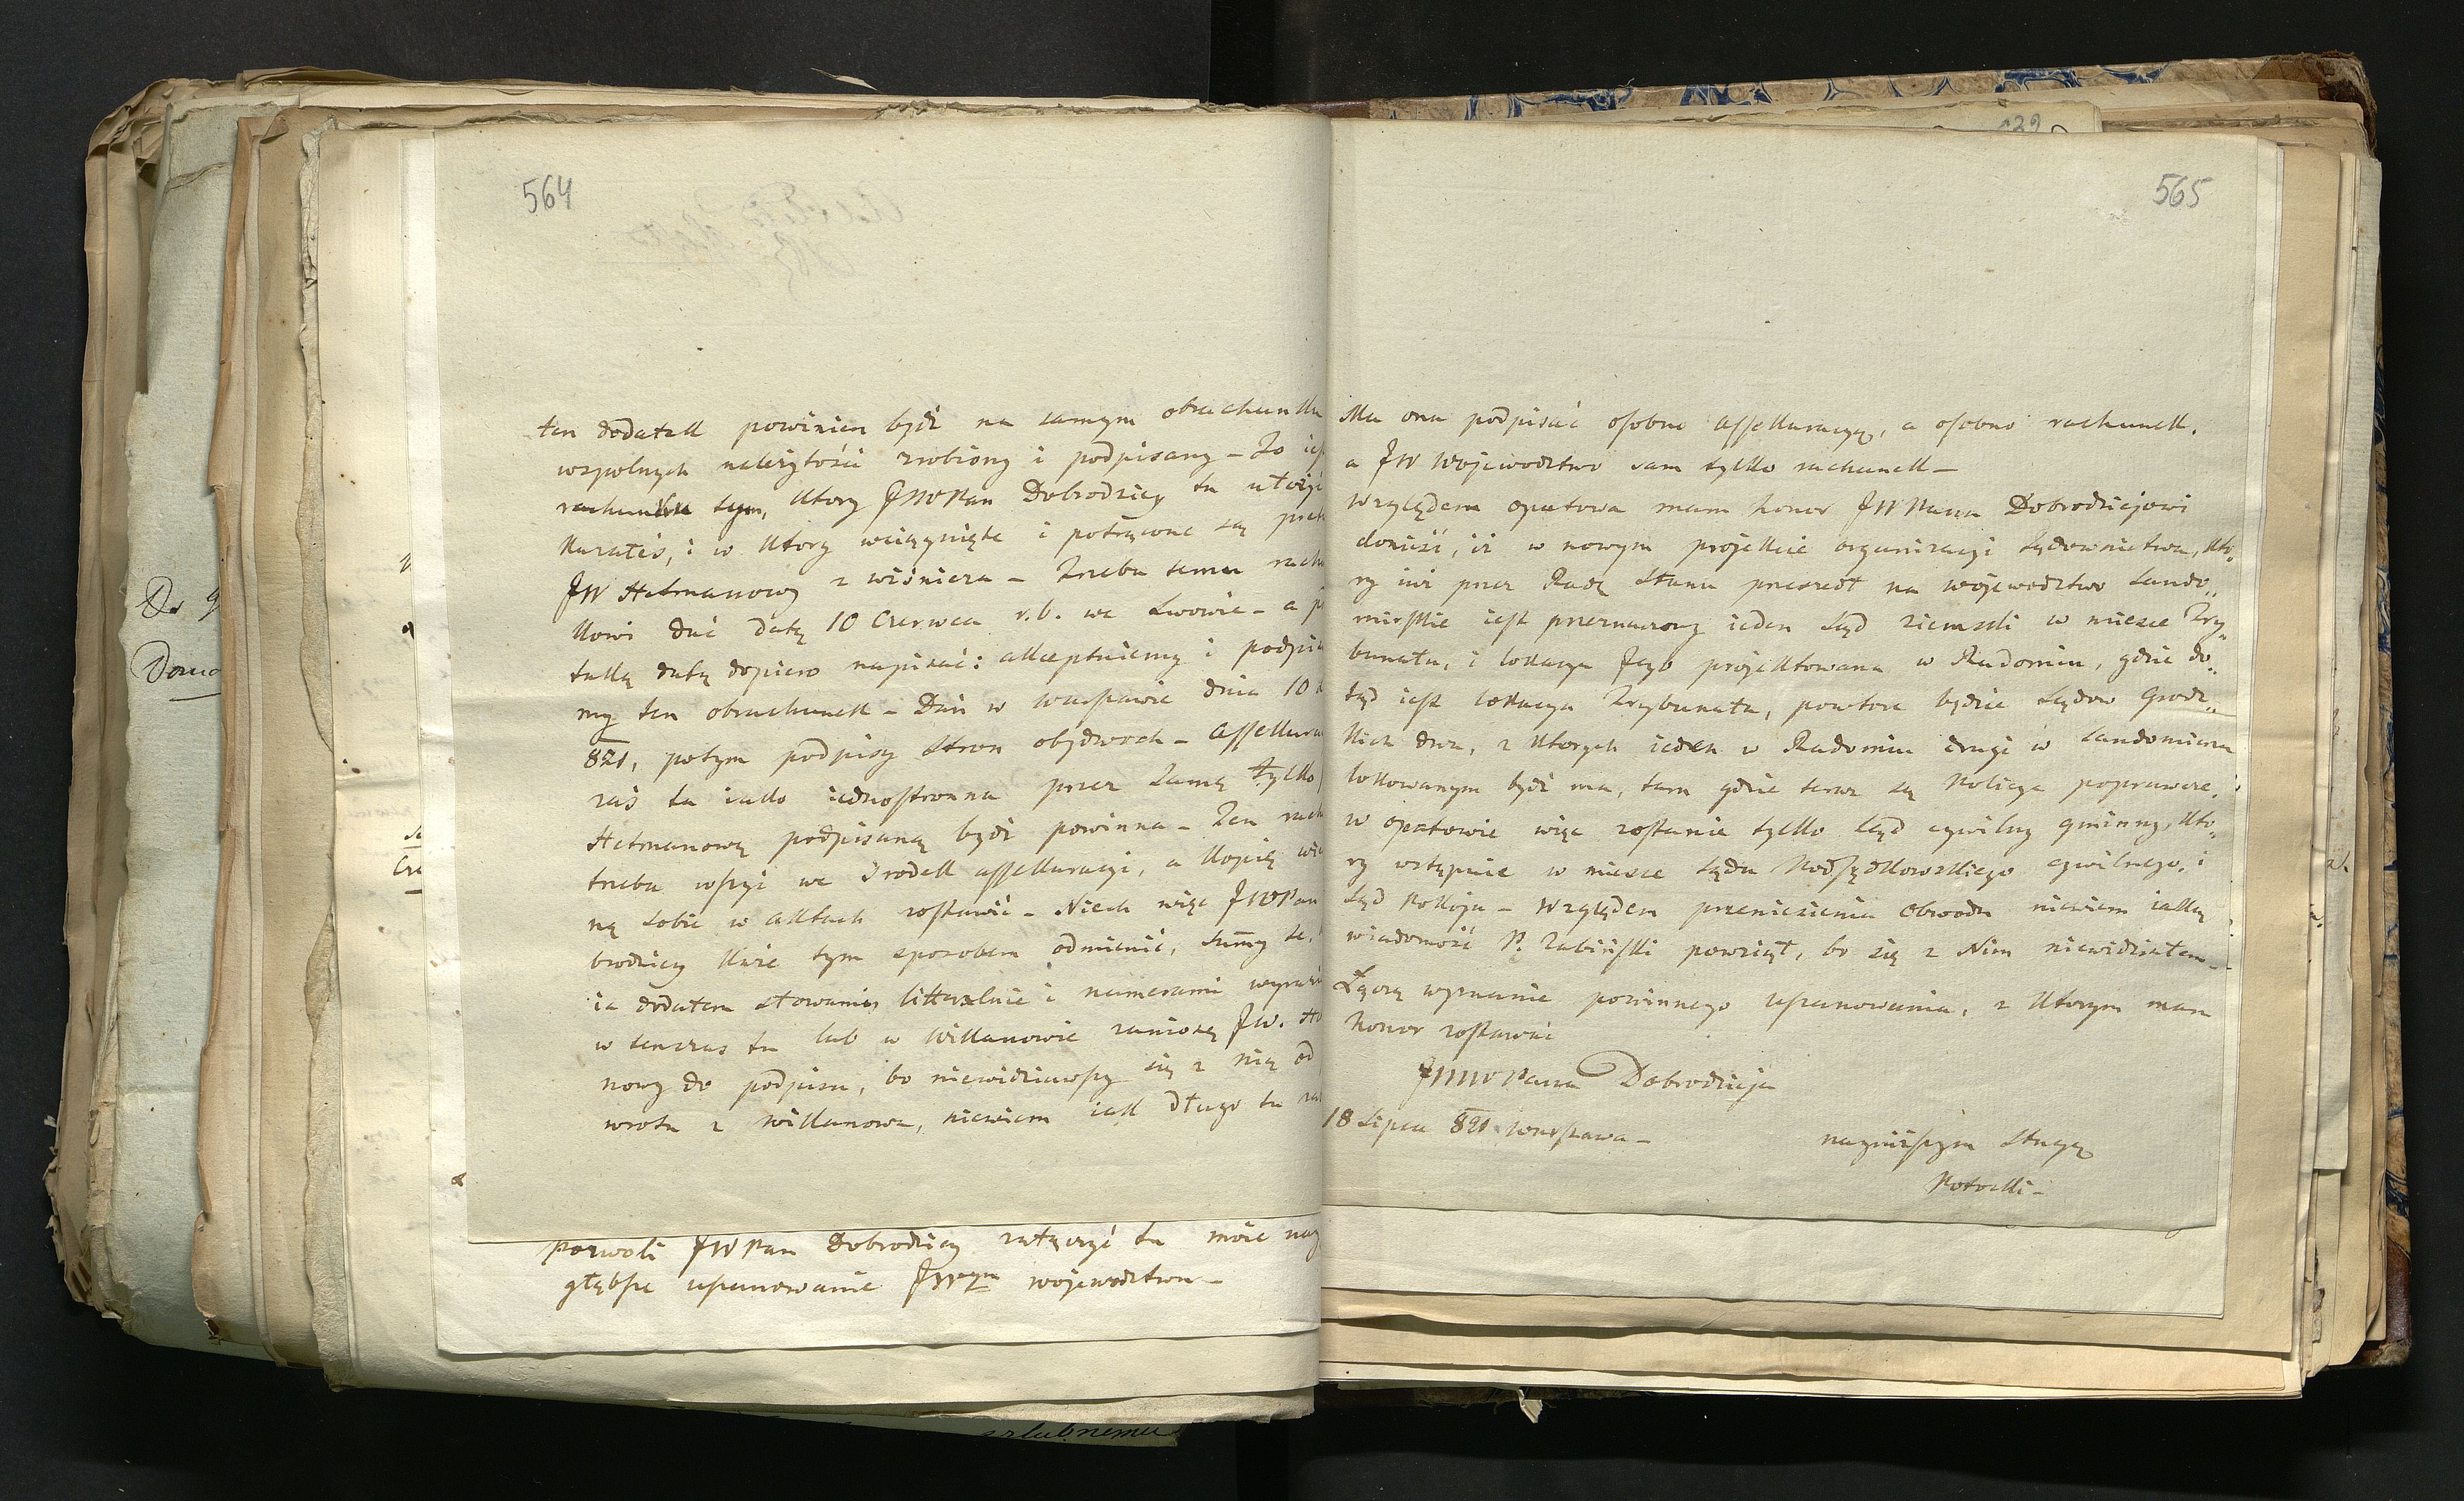 564
ten dodatek powinien bydź na samym obrachunku
wspolnych należytości zrobiony i podpisany – To ies
rachunku tym, ktory JWWPan Dobrodziey tu utoży
i w ktory wciągnięte i potrącone są pret
JW Hetmanowy z wiśnicza – Trzeba temu rach
kowi dać datę 10 Czerwca r.b. we Lwowie – a p
taką datą dopiero napisać: akceptuiemy i podpis
my ten obrachunek – Dan w warszawie dnia 10
821, potym podpisy stron obydwoch – Assekura
zaś ta iako iednostronna przez samę tylko
Hetmanową podpisaną bydź powinna – Ten rach
trzeba wszyć we srodek assekuracyi, a kopię wie
ną sobie w aktach zostawić – Niech więc JWWPan
brodziey każe tym sposobem odmienić, summy te,
ia dodatem słowami, litteralnie i numerami wyraz
w tenczas tu lub w Willanowie zaniosę JW. He
nowy do podpisu, bo niewidziawszy się z nią od
wrotu z willanowa, niewiem iak długo tu
pozwoli JWPan Dobrodziey załączyć tu moie nay
głębsze uszanowanie JWWeym wojewodztwu –
565
Ma ona podpisać osobno assekuracyę, a osobno rachunek,
a JW Wojewodztwo sam tylko rachunek –
Względem opatowa mam honor JWPanu Dobrodziejowi
donieść, iż w nowym projekcie organizacyi Sądownictwa, kto„
ry iuż przez Radę Stanu przeszedł na wojewodztwo Sando„
mirskie iest przeznaczony ieden Sąd ziemski w miesce Try„
bunału, i lokacya Jego projektowana w Radomiu, gdzie do„
tąd iest lokacya Trybunału, powtore będzie Sądow Grodz„
kich dwa, z ktorych ieden w Radomiu drugi w Sandomierzu
lokowanym bydź ma, tam gdzie teraz są Policye poprawcze,
w opatowie więc zostanie tylko Sąd cywilny gminny, kto„
ry wstępnie w miesce Sądu Podsędkowskiego cywilnego, i
Sąd Pokoju – Względem przeniesienia Obwodu niewiem iaką
wiadomość P. Zabiński powziął, bo się z Nim niewidziałem –
Łączę wyznanie powinnego uszanowania, z ktorym mam
honor zostawać
JWWPana Dobrodzieja
18 Lipca 821 warszawa –
nayniższym Sługą
Potocki –